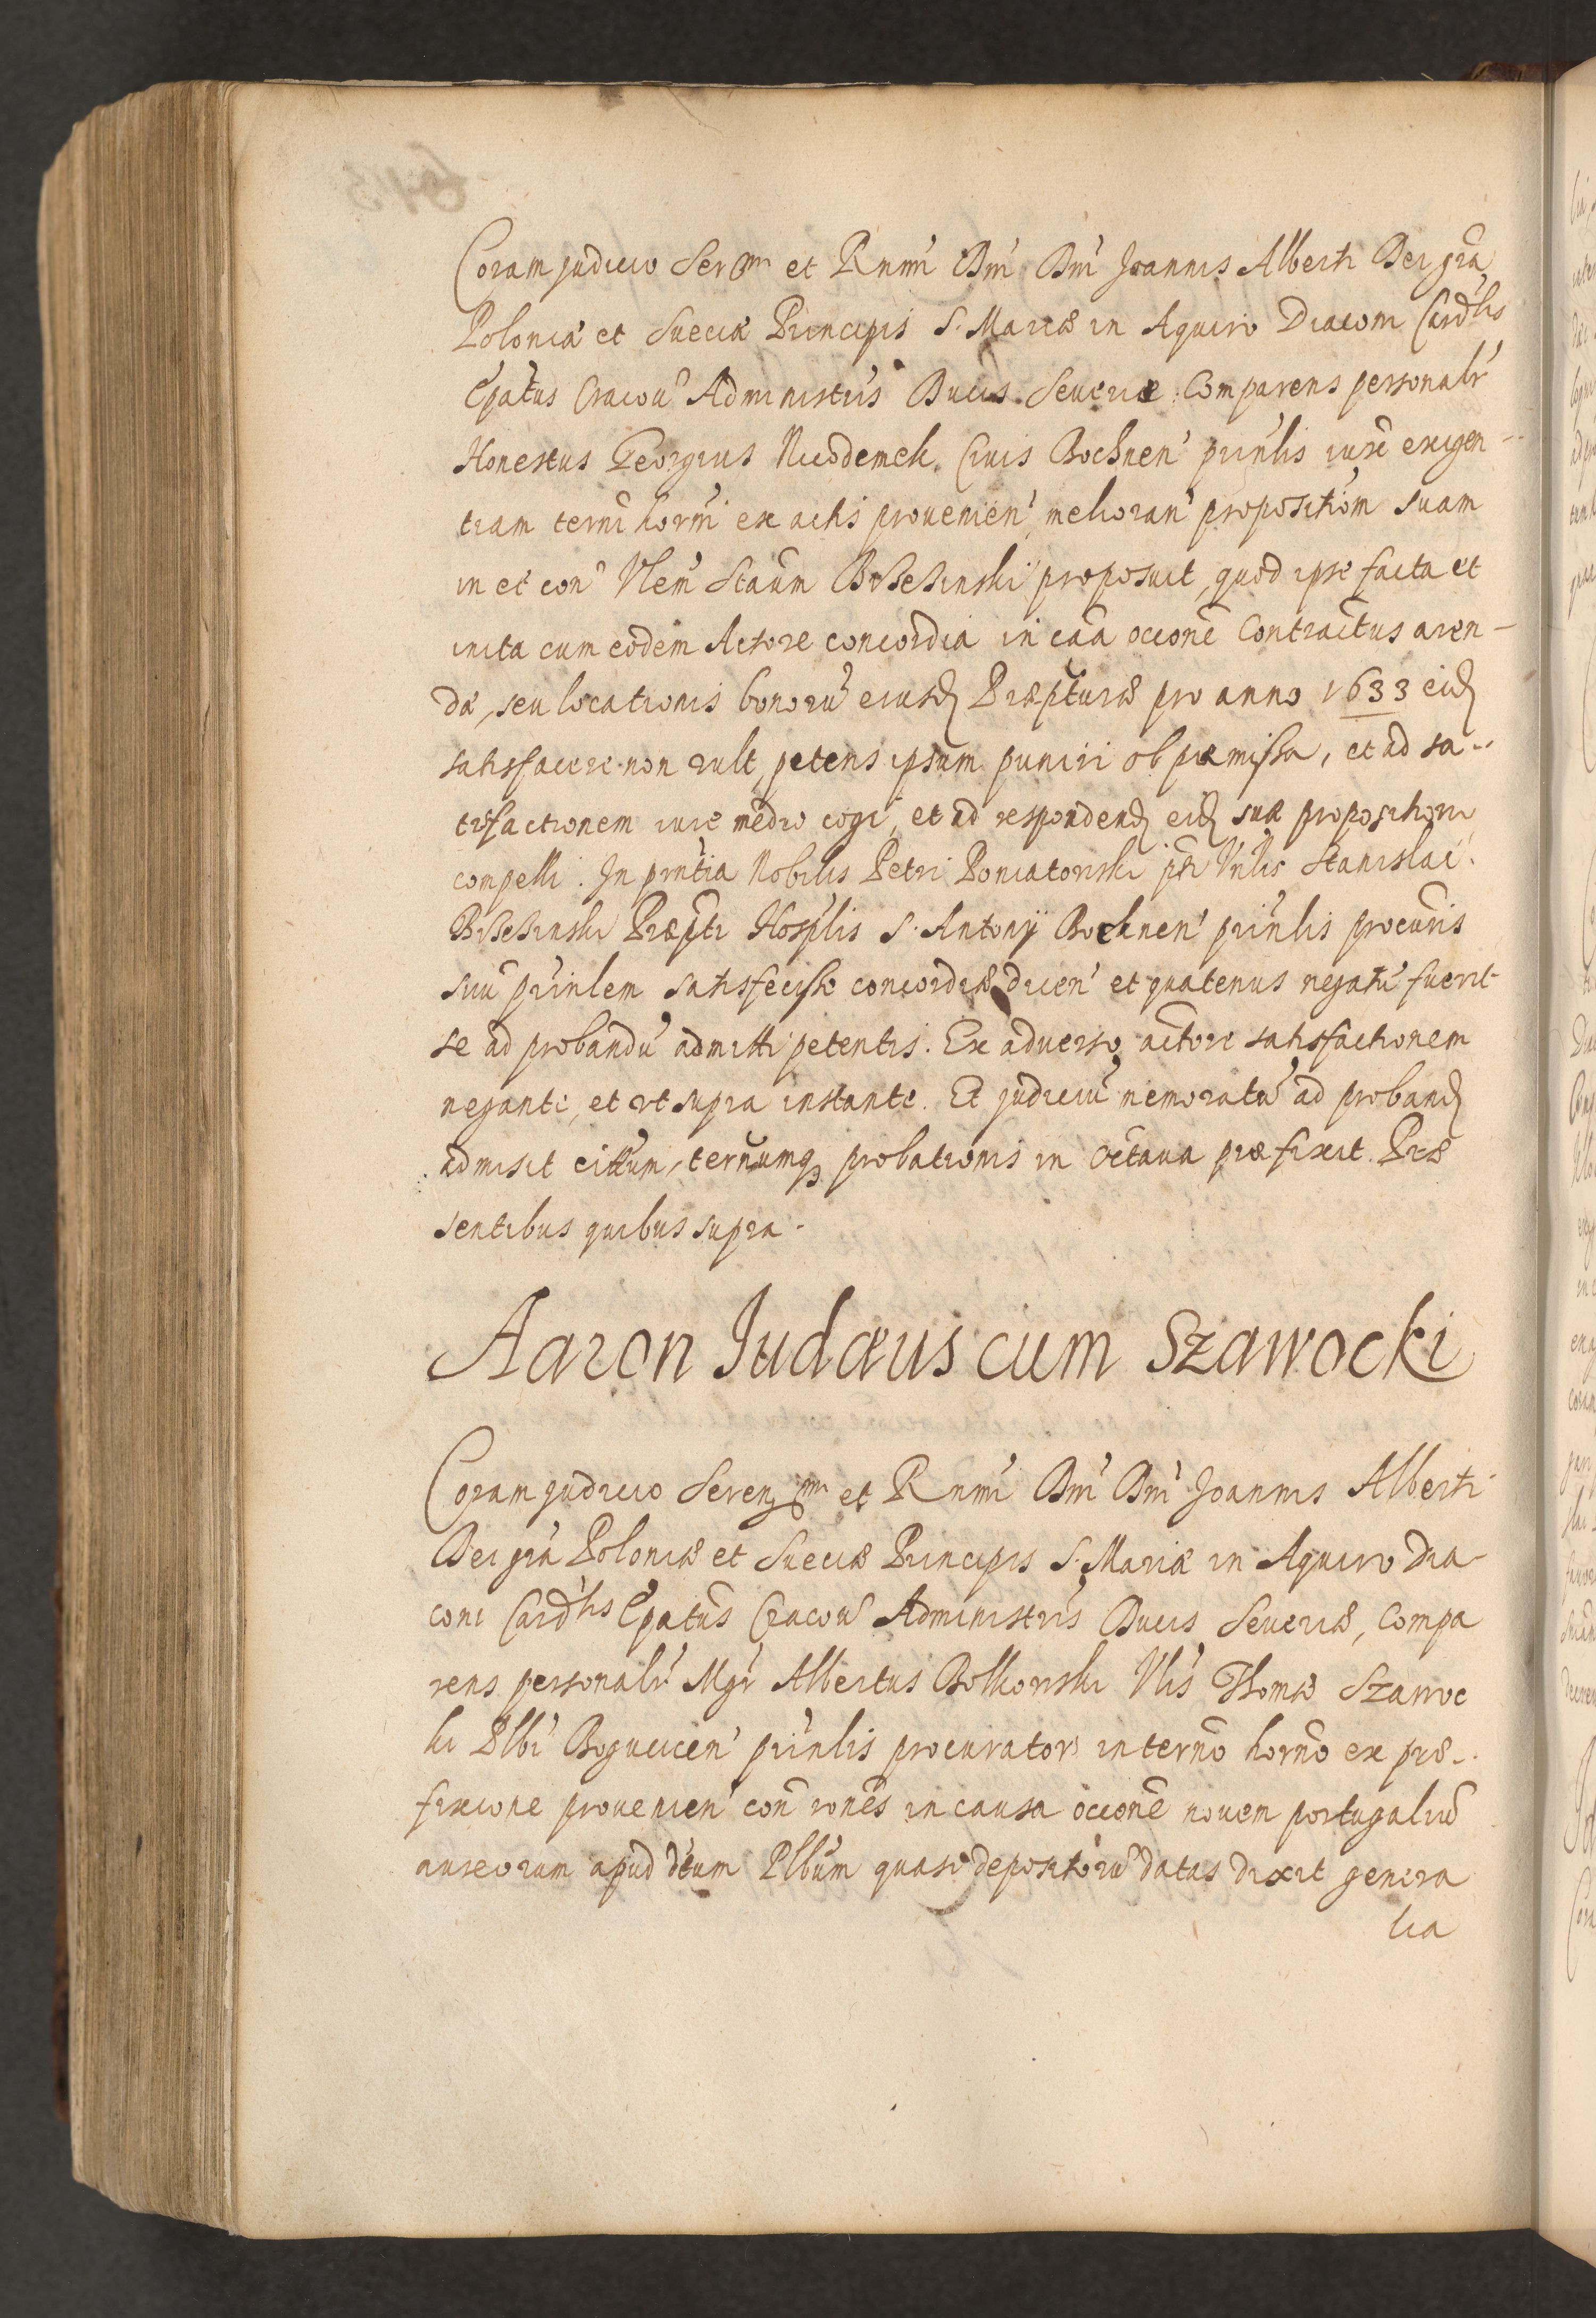 Coram judicio Ser̃m et Rnmi Dni Dni Joannis Alberti Dei gra
Poloniæ et Sueciæ Principis S. Mariæ in Aquiro Diaconi Cardlis
Epatus Cracou Administris Ducis Seueriæ Comparens personalr
Honestus Georgius Nicodemek Ciuis Bochnen prinlis iuxe exigen-
tiam termi horni ex actis prouenien melioran propositiom suam
in et con Vlem Staum proposuit, quod ipse facta et
inita cum eodem Actore concordia in caa occione Contractus aren-
dæ, seu locationis bonoru eiusd Præpturæ pro anno 1633 eid
satisfacere non vult, petens ipsum puniri ob præmissa, et ad sa-
tisfactionem iure medio cogi, et ad respondend eid suæ propositioni
compelli. In pntia Nobilis Petri Poniatowski Stanislai
Præpti Hosplis S. Antonij Bochnen prinlis procuris
suu prinlem satisfecisse concordiæ dicen et quatenus negatu fuerit
se ad probandu admitti petentis. Ex aduerso actore satisfactionem
negante, et vt supra instante. Et judiciu memoratu ad proband
admisit citum, ternumq probationis in octaua præfixit. Præ
sentibus quibus supra.
Aaron Judæus cum Szawocki
Coram judicio Serenism et Rnmi Dni Dni Joannis Alberti
Dei gra Poloniæ et Sueciæ Principis S. Mariæ in Aquiro Dia-
coni Cardlis Epatus Cracou Administris Ducis Seueriæ, Compa
rens personalr Mgr Albertus Bolkowski Vlis Thomæ Szawoc
ki Plbi Bogucicen prinlis procurator in termo horno ex præ-
fixione prouenien con iones in causa occione nouem portugaliu
aureorum apud dtum Plbum quasi depositoru datas dixit genera
lia